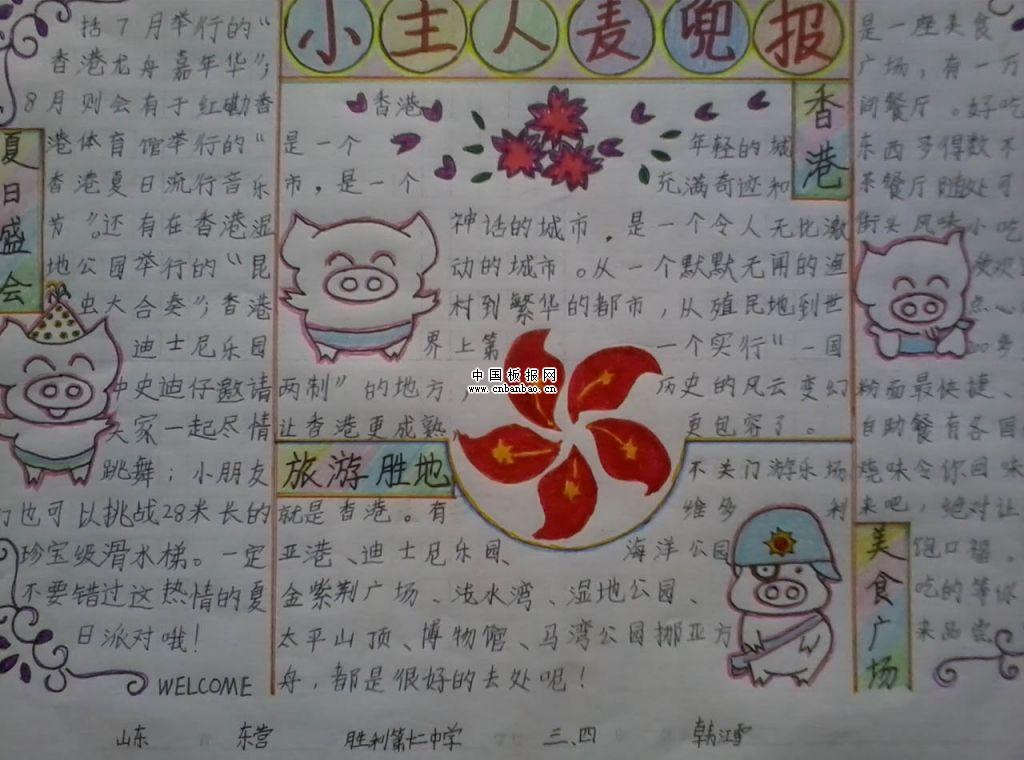 小主人麦兜报
夏日盛会
括7月举行的“
香港龙舟嘉年华”；
8月则会有于红磡香
港体育馆举行的“
香港夏日流行音乐
节”。还有在香港湿
地公园举行的“昆
虫大合奏”；香港
迪士尼乐园
史迪仔邀请
大家一起尽情
跳舞；小朋友
们也可以挑战28米长的
珍宝级滑水梯。一定
不要错过这热情的夏
日派对哦！
WELCOME
香港
香港
是一个 年轻的城
市，是一个 充满奇迹和
神话的城市，是一个令人无比激
动的城市。从一个默默无闻的渔
村到繁华的都市，从殖民地到世
界上第 一个实行“一国
两制”的地方， 历史的风云变幻
让香港更成熟， 更包容了。
中国板报网
www.cnbanbao.cn
旅游胜地
不关门游乐场
就是香港。有 维多利
亚港、迪士尼乐园、 海洋公园
金紫荆广场、浅水湾、湿地公园、
太平山顶、博物馆、马湾公园挪亚方
舟，都是很好的去处呢！
美食广场
是一座美食
广场，有一万
间餐厅。好吃
东西多得数不
茶餐厅随处可
街头风味小吃
点心
多
粉面最快捷、
自助餐有各国
烧味令你回味
来吧，绝对让
饱口福。
吃的等你
来品尝
山东 东营 胜利第 中学 三、四 韩江雪